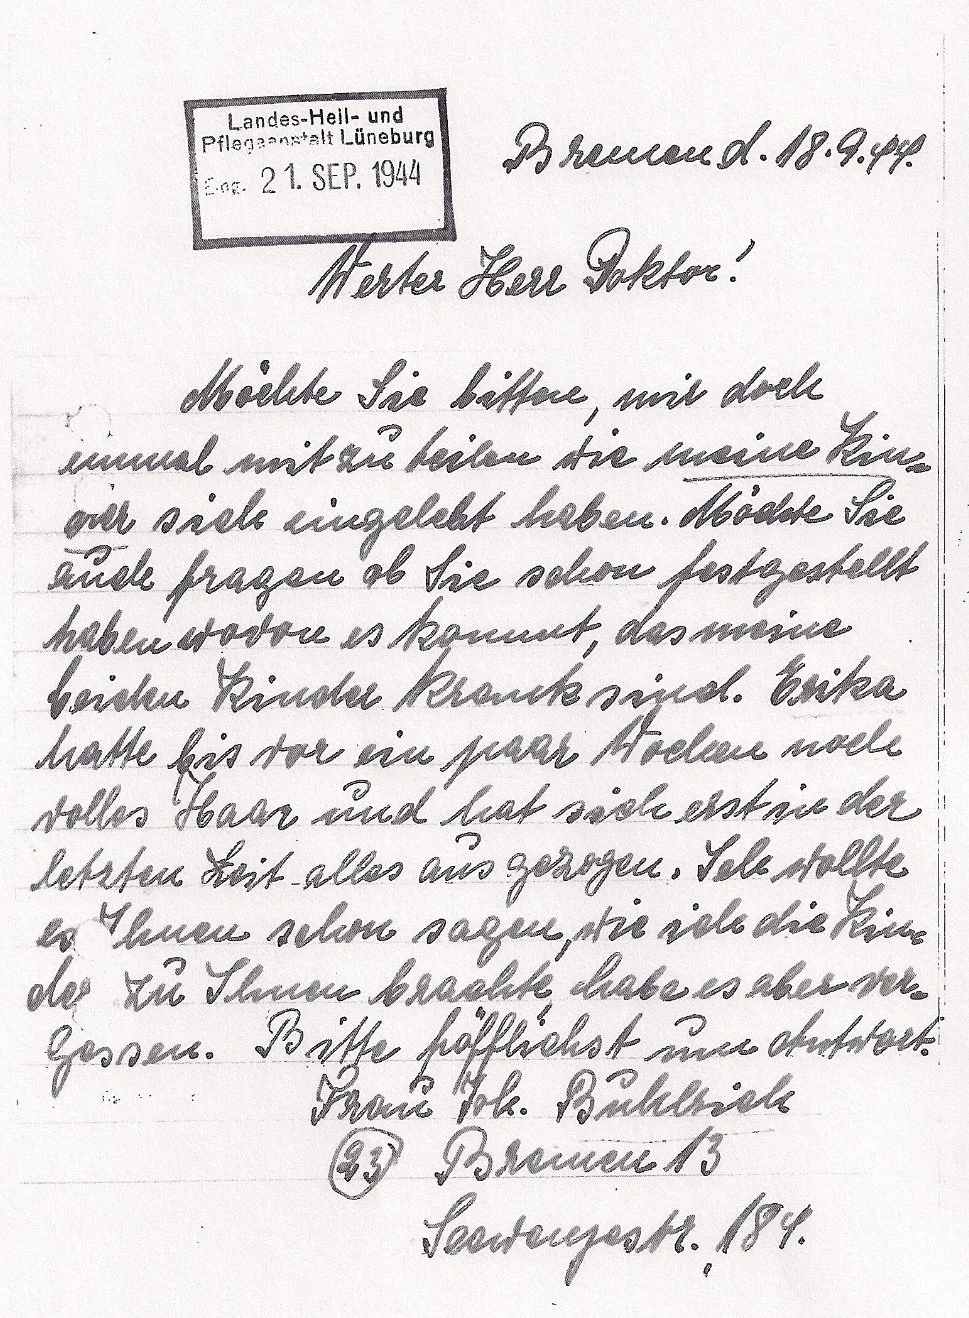 Landes-Heil- und
Pflegeanstalt Lüneburg
Eing. 21. SEP. 1944
Bremen d. 18.9.44.
Werter Herr Doktor!
Möchte Sie bitten, mir doch
einmal mitzuteilen wie meine Kin-
der sich eingelebt haben. Möchte Sie
auch fragen ob Sie schon festgestellt
haben wovon es kommt, das meine
beiden Kinder krank sind. Erika
hatte bis vor ein paar Wochen noch
volles Haar und hat sich erst in der
letzten Zeit alles ausgezogen. Ich wollte
es Ihnen schon sagen, wie ich die Kin-
der zu Ihnen brachte, habe es aber ver-
gessen. Bitte höfflichst um Antwort.
Frau Joh. Buhlrich
(23) Bremen 13
184.